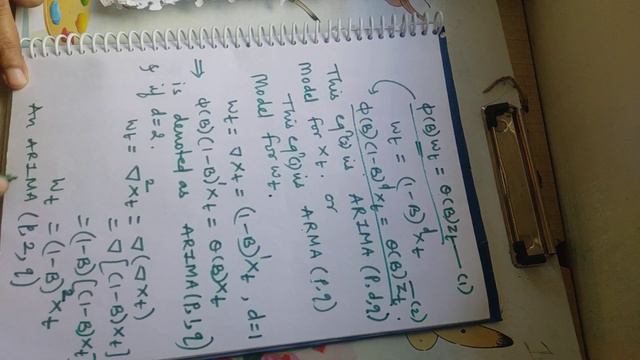 ϕ(B)Wt = θ(B)Zt —(1)
Wt = (1-B)^d Xt
ϕ(B)(1-B)^d Xt = θ(B)Zt —(2)
This eqⁿ(2) is ARIMA (P,d,q)
Model for Xt. or
This eqⁿ(1) is ARMA (P,q)
Model for Wt.
Wt = ∇Xt = (1-B)^1 Xt , d=1
⇒ ϕ(B)(1-B)^1 Xt = θ(B)Xt
is denoted as ARIMA(P,1,q)
& if d=2.
Wt = ∇²Xt = ∇(∇Xt)
= ∇[(1-B)Xt]
= (1-B)[(1-B)Xt]
Wt = (1-B)²Xt
An ARIMA (P,2,q)